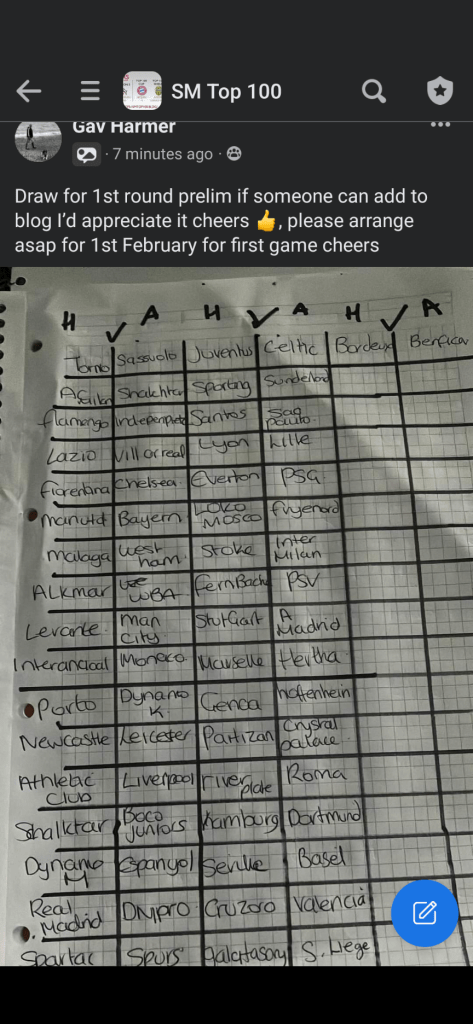 SM Top 100
Gav Harmer
7 minutes ago
Draw for 1st round prelim if someone can add to
blog I'd appreciate it cheers 👍, please arrange
asap for 1st February for first game cheers
H V A H V A H V A
Torino Sassuolo Juventus Celtic Bordeux Benfica
Shalchter Sporting Sunderland
flamengo Santos Sao Paulo
Lazio Villarreal Lyon Lille
fiorentina Chelsea Everton PSG
manutd Bayern LOKO MOSCO
malaga West ham Stoke Inter Milan
ALkmar WBA PSV
Levante Man City A Madrid
Monaco Hertha
Porto Dynamo K. Genoa
Newcastle Leicester Partizan Crystal palace
Athletic Club Liverpool river plate Roma
Shalktar Boca juniors Hamburg Dortmund
Dynamo M Espanyol Basel
Real Madrid Dnipro Cruzoro Valencia
Spartac Spurs S. Liege